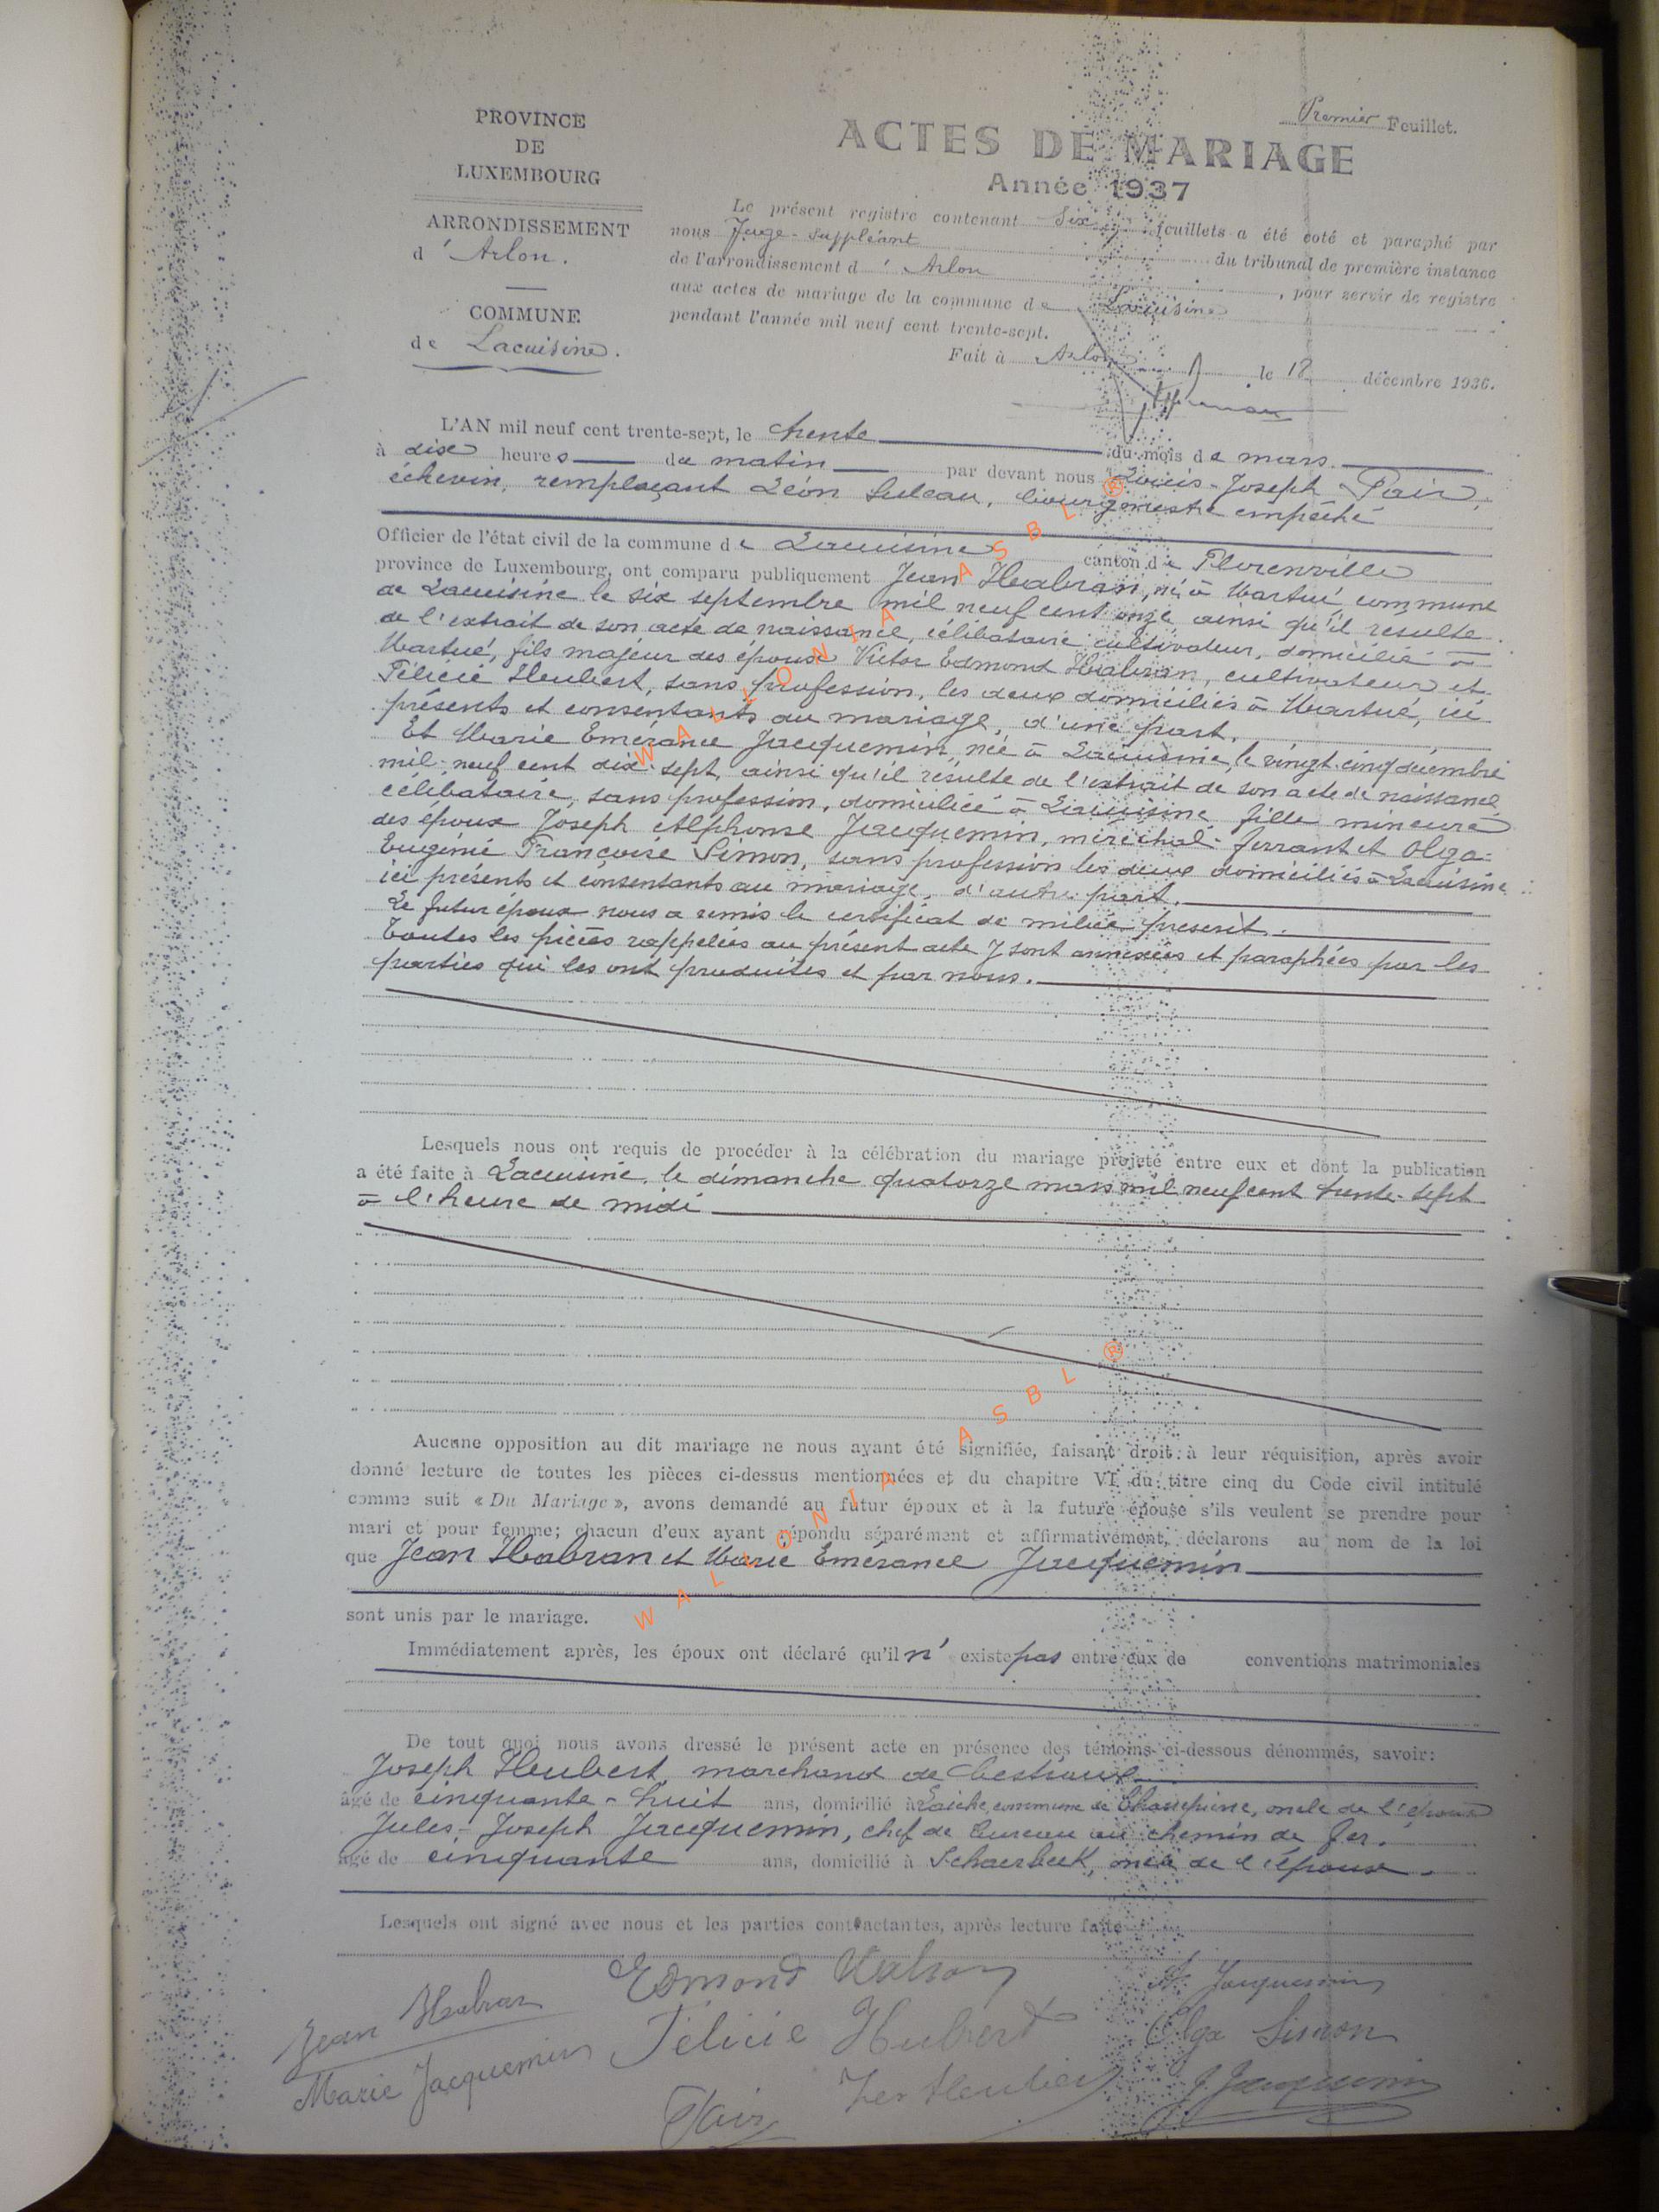 PROVINCE
DE
LUXEMBOURG
ARRONDISSEMENT
d' Arlon.
COMMUNE
de Lacuisine.
Premier Feuillet.
ACTES DE MARIAGE
Année 1937
Le présent registre contenant six feuillets a été coté et paraphé par
nous Juge-suppléant du tribunal de première instance
de l'arrondissement d' Arlon, pour servir de registre
aux actes de mariage de la commune de Lacuisine
pendant l'année mil neuf cent trente-sept.
Fait à Arlon le 18 décembre 1936.
L'AN mil neuf cent trente-sept, le trente du mois de mars
à dix heures du matin par devant nous Louis-Joseph Pair,
échevin, remplaçant Léon Suleau, bourgmestre empêché
Officier de l'état civil de la commune de Lacuisine canton de Florenville
province de Luxembourg, ont comparu publiquement Jean Habran, né à Martué commune
de Lacuisine le six septembre mil neuf cent onze ainsi qu'il resulte
de l'extrait de son acte de naissance, célibataire cultivateur, domicilié à
Martué, fils majeur des époux Victor Edmond Habran, cultivateur et
Félicie Heubert, sans profession, les deux domiciliés à Martué, ici
présents et consentants au mariage, d'une part.
Et Marie Emérance Jacquemin, née à Lacuisine, le vingt-cinq décembre
mil-neuf cent dix-sept, ainsi qu'il résulte de l'extrait de son acte de naissance
célibataire, sans profession, domiciliée à Lacuisine fille mineure
des époux Joseph Alphonse Jacquemin, maréchal-ferrant et Olga-
Eugénie Françoise Simon, sans profession les deux domiciliés à Lacuisine
ici présents et consentants au mariage, d'autre part.
Le futur époux nous a remis le certificat de milice prescrit.
Toutes les pièces rappelées au présent acte y sont annexées et paraphées par les
parties qui les ont produites et par nous.
Lesquels nous ont requis de procéder à la célébration du mariage projeté entre eux et dont la publication
a été faite à Lacuisine, le dimanche quatorze mars mil neuf cent trente-sept
à l'heure de midi
Aucune opposition au dit mariage ne nous ayant été signifiée, faisant droit à leur réquisition, après avoir
donné lecture de toutes les pièces ci-dessus mentionnées et du chapitre VI du titre cinq du Code civil intitulé
comme suit « Du Mariage », avons demandé au futur époux et à la future épouse s'ils veulent se prendre pour
mari et pour femme; chacun d'eux ayant répondu séparément et affirmativement, déclarons au nom de la loi
que Jean Habran et Marie Emérance Jacquemin
sont unis par le mariage.
Immédiatement après, les époux ont déclaré qu'il n' existe pas entre eux de conventions matrimoniales
De tout quoi nous avons dressé le présent acte en présence des témoins ci-dessous dénommés, savoir:
Joseph Heubert, marchand de bestiaux
âgé de cinquante-huit ans, domicilié à Laiche, commune de Chassepierre, oncle de l'époux
Jules-Joseph Jacquemin, chef de bureau au chemin de fer,
âgé de cinquante ans, domicilié à Schaerbeek, oncle de l'épouse.
Lesquels ont signé avec nous et les parties contractantes, après lecture faite
Edmond Habran
Jacquemin
Jean Habran
Félicie Hubert
Olga Simon
Marie Jacquemin
Jos Heubert
J Jacquemin
Pair
WALLONIA ASBL ®
WALLONIA ASBL ®